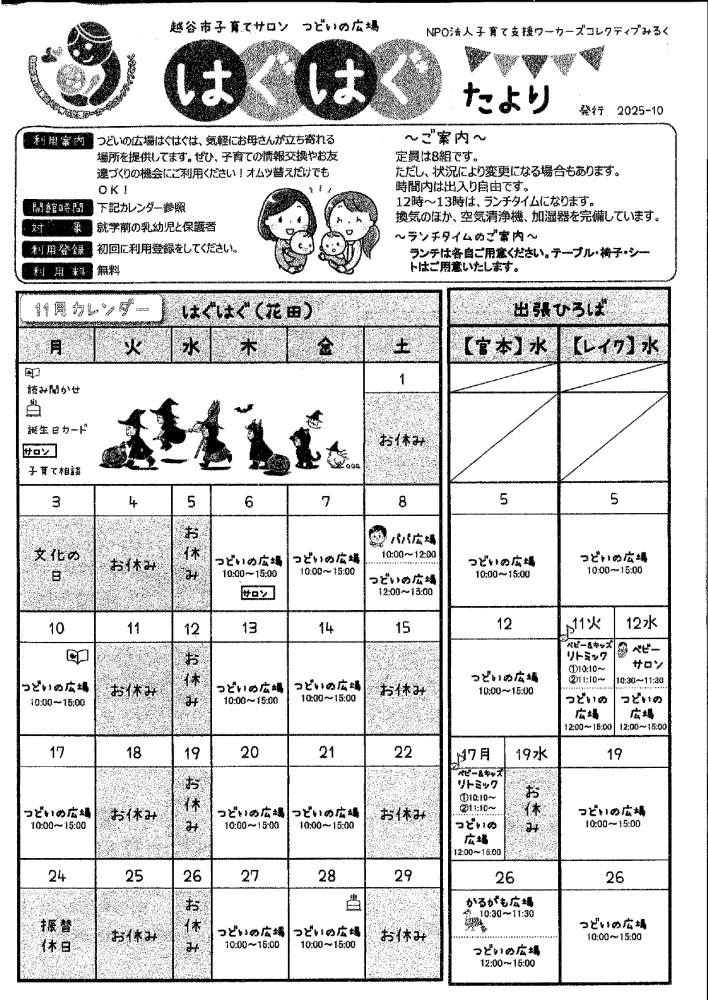 越谷市子育てサロン つどいの広場
NPO法人子育て支援ワーカーズコレクティブみるく
はぐはぐ
たより
発行 2025-10
利用案内
つどいの広場はぐはぐは、気軽にお母さんが立ち寄れる
場所を提供してます。ぜひ、子育ての情報交換やお友
達づくりの機会にご利用ください！オムツ替えだけでも
OK！
開館時間 下記カレンダー参照
対象 就学前の乳幼児と保護者
利用登録 初回に利用登録をしてください。
利用料 無料
～ご案内～
定員は8組です。
ただし、状況により変更になる場合もあります。
時間内は出入り自由です。
12時～13時は、ランチタイムになります。
換気のほか、空気清浄機、加湿器を完備しています。
～ランチタイムのご案内～
ランチは各自ご用意ください。テーブル・椅子・シー
トはご用意いたします。
11月カレンダー はぐはぐ（花田）
月 火 水 木 金 土
読み聞かせ
誕生日カード
サロン
子育て相談
1
お休み
3 4 5 6 7 8
文化の
日
お休み
お休み
つどいの広場
10:00～15:00
サロン
つどいの広場
10:00～15:00
パパ広場
10:00～12:00
つどいの広場
12:00～15:00
10 11 12 13 14 15
つどいの広場
10:00～15:00
お休み
お休み
つどいの広場
10:00～15:00
つどいの広場
10:00～15:00
お休み
17 18 19 20 21 22
つどいの広場
10:00～15:00
お休み
お休み
つどいの広場
10:00～15:00
つどいの広場
10:00～15:00
お休み
24 25 26 27 28 29
振替
休日
お休み
お休み
つどいの広場
10:00～15:00
つどいの広場
10:00～15:00
お休み
出張ひろば
【宮本】水 【レイク】水
5 5
つどいの広場
10:00～15:00
つどいの広場
10:00～15:00
12 11火 12水
つどいの広場
10:00～15:00
ベビー&キッズ
リトミック
①10:10～
②11:10～
つどいの
広場
12:00～15:00
ベビー
サロン
10:30～11:30
つどいの
広場
12:00～15:00
17月 19水 19
ベビー&キッズ
リトミック
①10:10～
②11:10～
つどいの
広場
12:00～15:00
お休み
つどいの広場
10:00～15:00
26 26
かるがも広場
10:30～11:30
つどいの広場
12:00～15:00
つどいの広場
10:00～15:00